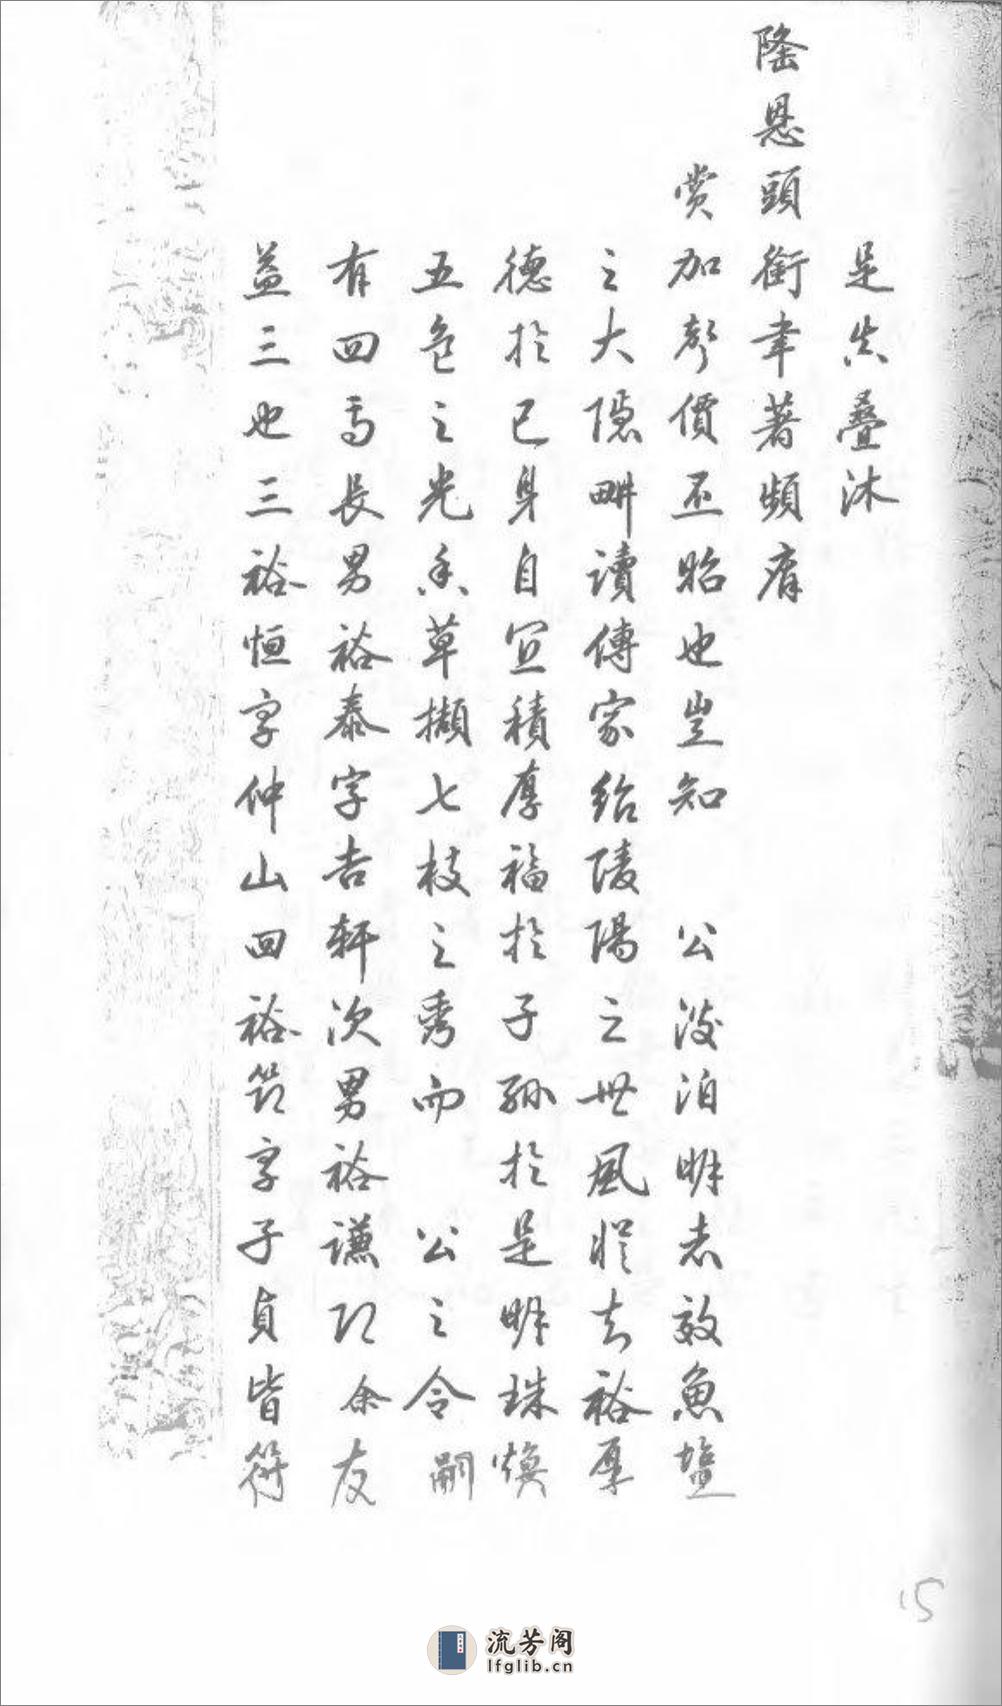 是共疊沐
隆恩頭銜聿著頻膺
賞加聲價丕昭也豈知　公淡泊明志效魚鹽
之大隱畊讀傳家紹陵陽之世風慫去裕厚
德於已身自宜積厚福於子孫於是明珠煥
五色之光香草擷七枝之秀而　公之令嗣
有四焉長男裕泰字吉軒次男裕謙即余友
益三也三裕恒字仲山四裕節字子貞皆符
15
流芳阁
lfglib.cn